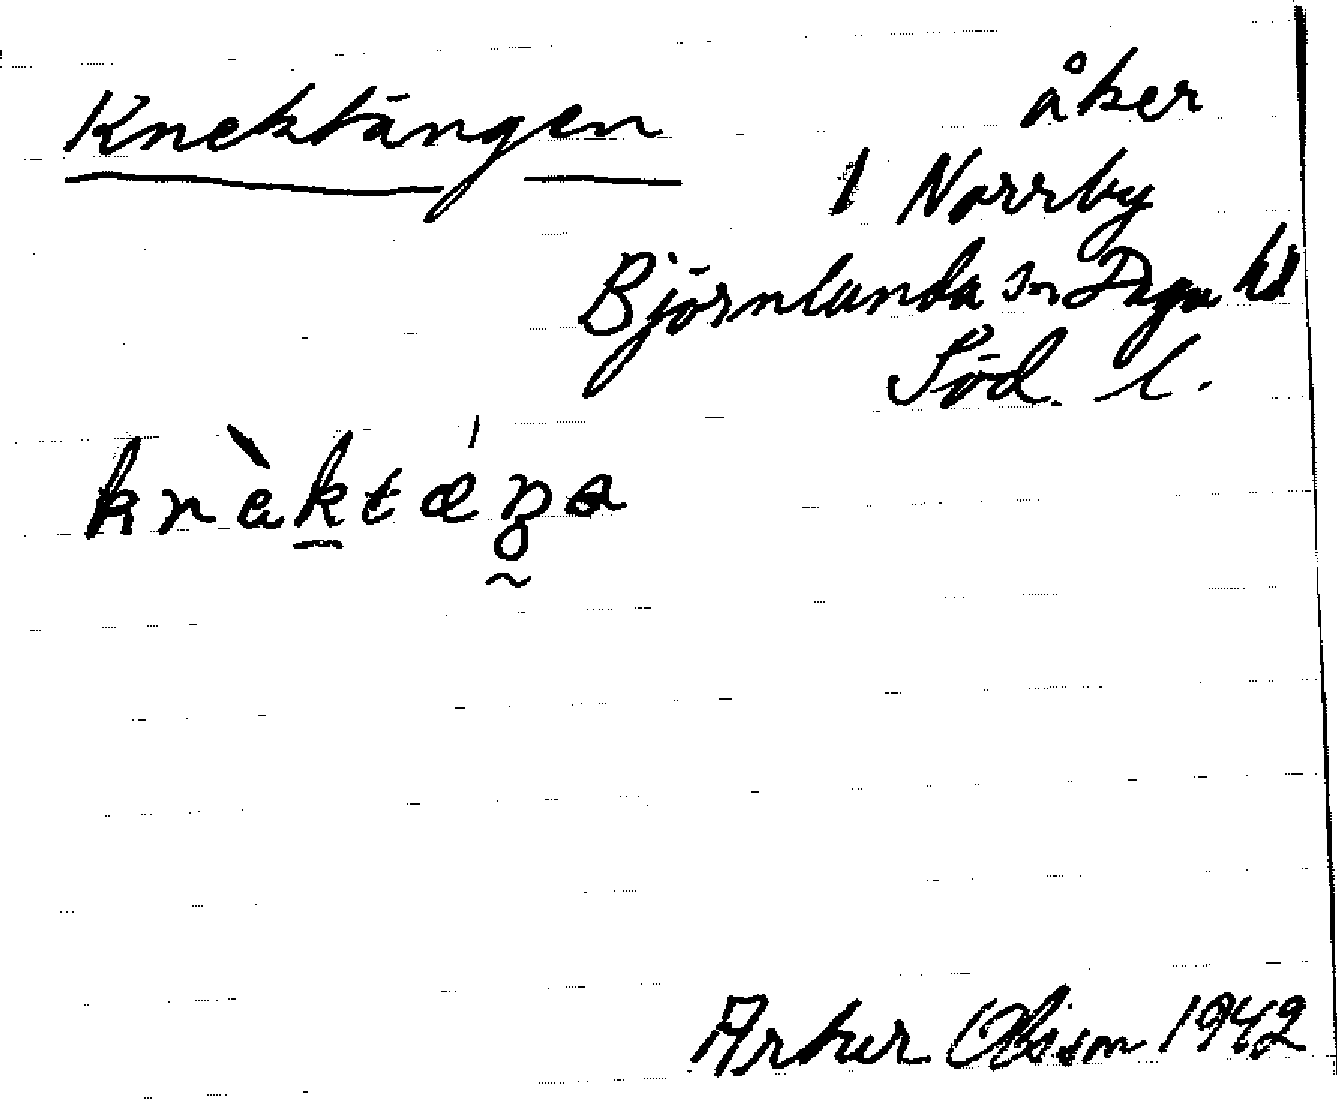 Knektängen
åker
1 Norrby
Björnlunda sn Daga hd
Söd. l.
knèktǽŋa
Artur Olsson 1942